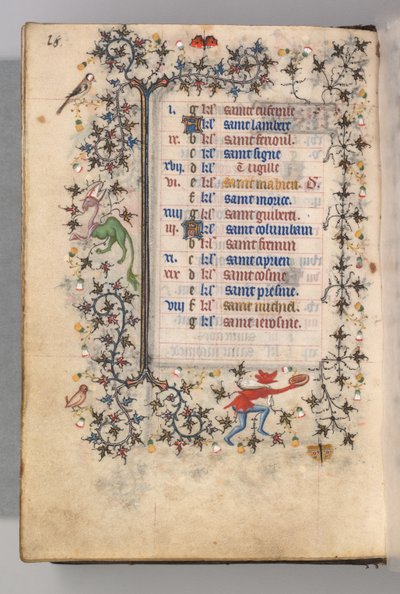 28.
i. g kl' saincte eufemie
A kl' saint lambert
ix. b kl' saint ferioul.
c kl' saint signe
xvii d kl' vigille
vi. e kl' saint mahieu. D.
f kl' saint morice.
xiiii g kl' saint guilbert.
iii. A kl' saint columbain
b kl' saint firmin
xi. c kl' saint aprien
xix d kl' saint cosme
e kl' saint presme.
viii f kl' saint michiel.
g kl' saint ierosme.